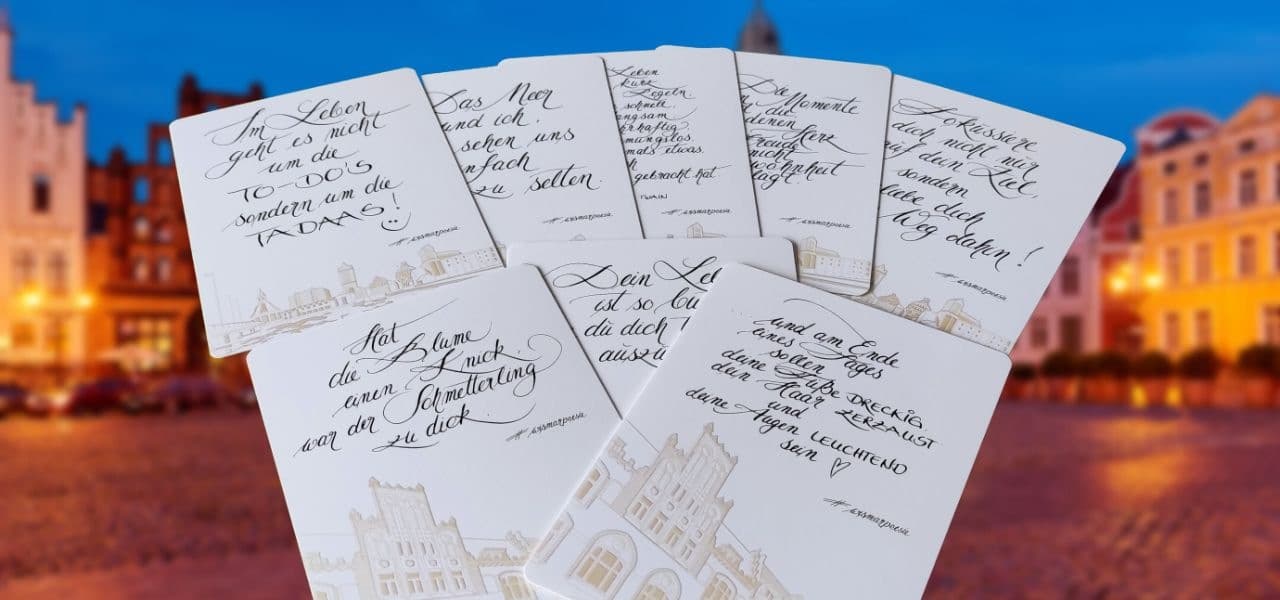 Im Leben
geht es nicht
um die
TO-DO'S
sondern um die
TADAAS!
#wismarpoesie
Das Meer
und ich.
sehen uns
nfach
zu selten.
#wismarpoesie
Leben
kurz
Regeln.
schnell.
langsam
hrhaftig
mungslos
mals etwas,
gebracht hat
TWAIN
#wismarpoesie
Die Momente
in die
denen
Herz
Freude
nicht
wohnheit
lägt.
#wismarpoesie
Fokussiere
dich nicht nur
auf dein Ziel,
sondern
liebe dich
Weg dahin!
#wismarpoesie
Dein Le
ist so bu
du dich
auszu
Hat
die Blume
einen Knick,
war der Schmetterling
zu dick.
#wismarpoesie
und am Ende
eines Tages
sollen
deine Füße DRECKIG,
dein Haar ZERZAUST
und
deine Augen LEUCHTEND
sein
#wismarpoesie